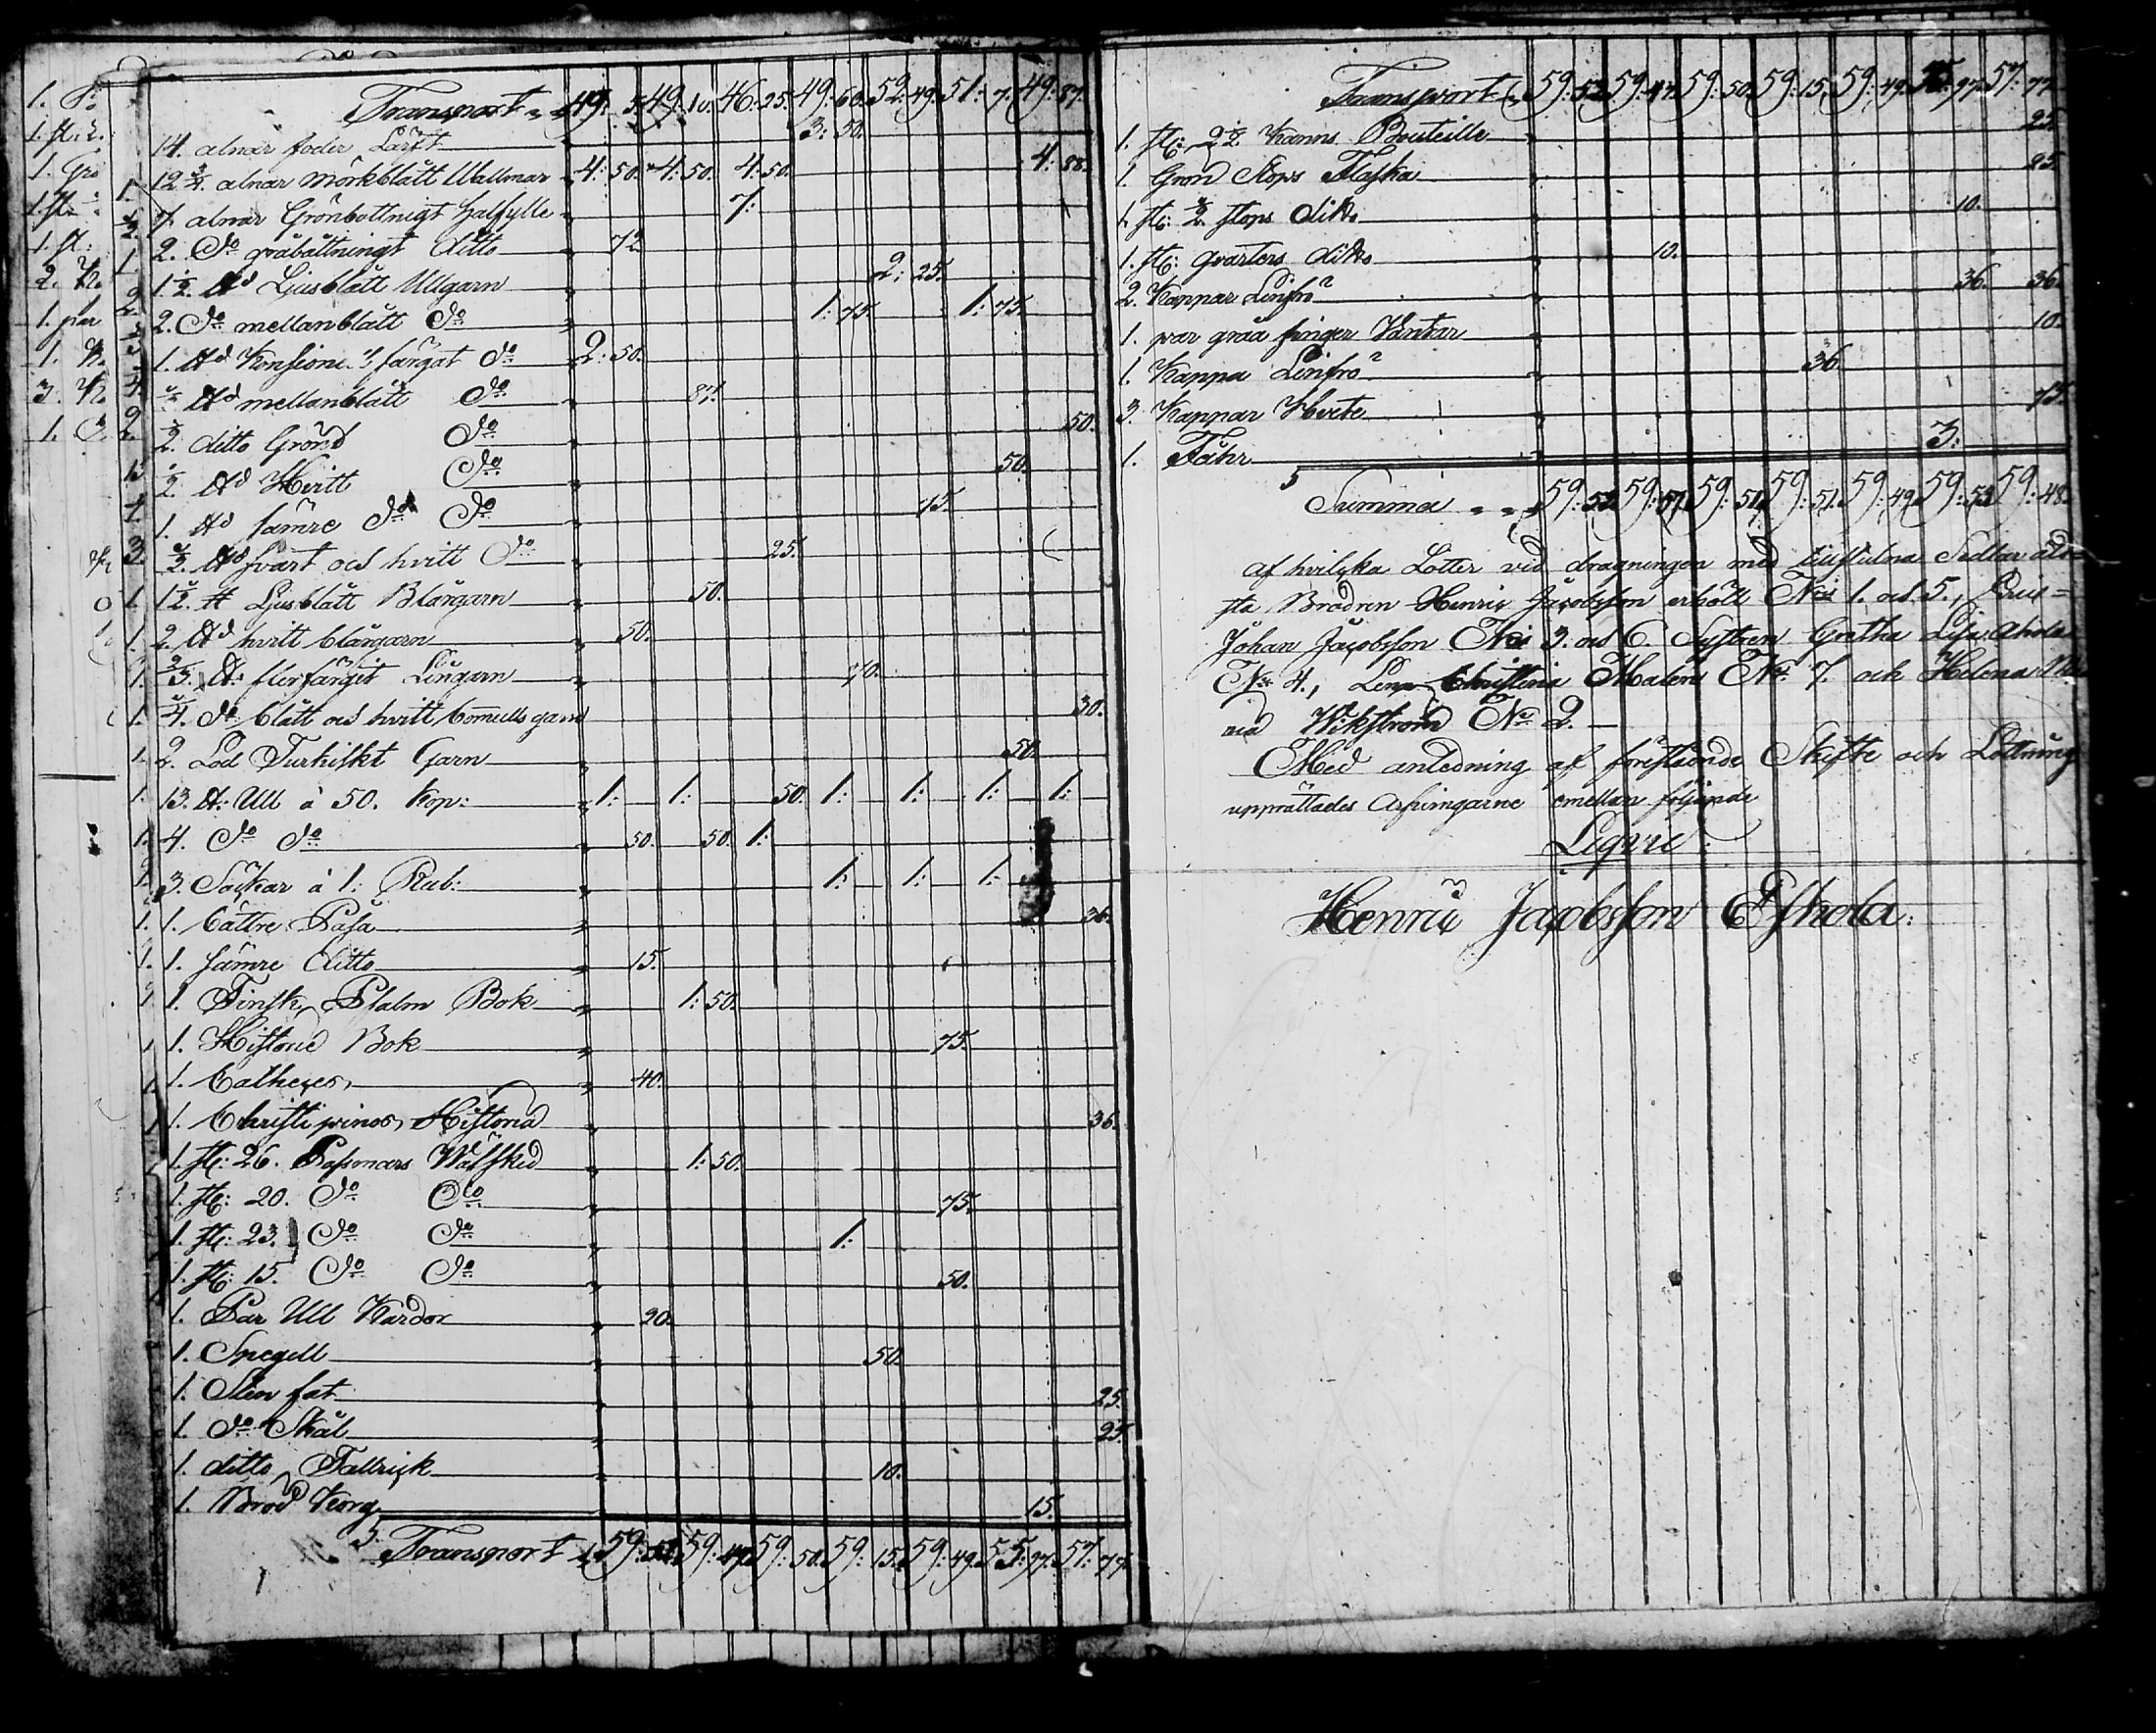 Transport 49: 5. 49: 10. 46: 25. 49: 60. 52: 49. 51: 7. 49: 87.
14. alnar foder Lärft 3: 50.
12 3/4. alnar mörkblått Wallmar 4: 50. 4: 50. 4: 50. 4: 88.
7. alnar Grönbottnigt halfylle 7:
2. Do gråbåttningt ditto 72
1 1/2. ℔d Ljusblått Ullgarn 2: 25.
2. Do mellanblått Do 1: 75. 1: 75.
1. ℔d färgat Do 2: 50.
℔d mellanblått Do 87.
1/2. ditto Grönd Do 50.
1/2. ℔d Hvitt Do 50.
1. ℔d sämre Do Do 75.
1/2. ℔d svart och hvitt Do 25.
1 1/2. ℔ Ljusblått Blångarn 50.
2. ℔d hvitt blångarn 50.
2/3. ℔: flerfärgit Lingarn 70.
1/4. Do blått och hvitt bomullsgarn 30.
2. Lod Turkiskt Garn 50.
13. ℔: Ull à 50. Kop: 1: 1: 50. 1: 1: 1: 1:
4. Do Do 50. 50. 1:
3. Säckar à 1: Rub: 1: 1: 1:
1. bättre Påsa 36.
1. sämre ditto 15.
1. Finsk Psalm Bok 1: 50.
1. Historie Bok 75.
1. Catheces, 40.
1. Christi pinos Historia 36.
1. st: 26. Pasmars Wäfsked 1: 50.
1. st: 20. Do Do 75.
1. st: 23. Do Do 1:
1. st: 15. Do Do 50.
1. Par Ull Kardor 20.
1. Spegell 50.
1. Sten fat 25.
1. Do Skål 25.
1. ditto Tallrick 10.
1. Bröd Korg 15.
Transport 59: 52. 59: 47. 59: 50. 59: 15. 59: 49. 55: 97. 57: 77.
Transport 59: 52. 59: 47. 59: 50. 59: 15. 59: 49. 55: 97. 57: 77.
1. st: 2 1/2 Kanns Bouteille 25.
1. Grön Stops Flaska 25.
1. st: 1/2 stops ditto 10.
1. st: qvarters ditto 10.
2. Kappar Linfrö 36. 36.
1. par gråa finger Vantar 10.
1. Kappa Linfrö 36.
3. Kappar Hvete 75.
1. Fåhr 3:
Summa 59: 52. 59: 57. 59: 50. 59: 51. 59: 49. 59: 53. 59: 48.
af hvilcka Lotter vid dragningen med tillslutna Sedlar äld-
sta Brodren Henric Jacobsson erhöll No 1. och 5.,
Johan Jacobsson No 3. och 6. Systren Gretha Lisa Ahola
No 4., Lena Christina Malens No 7. och Helena
Wikström No 2.
Med anledning af föreståënde Skifte och Lottning
upprättades Arfvingarne emellan följande
Liqvie:
Henric Jacobsson Eskola: